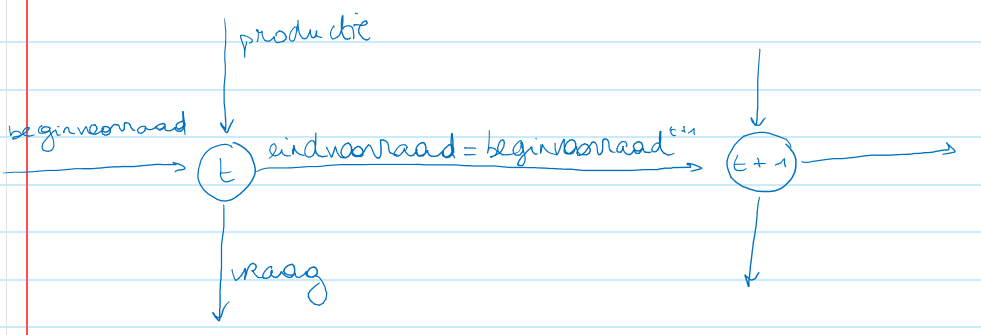 productie
beginvoorraad
t
eindvoorraad = beginvoorraad^t+1
t+1
vraag